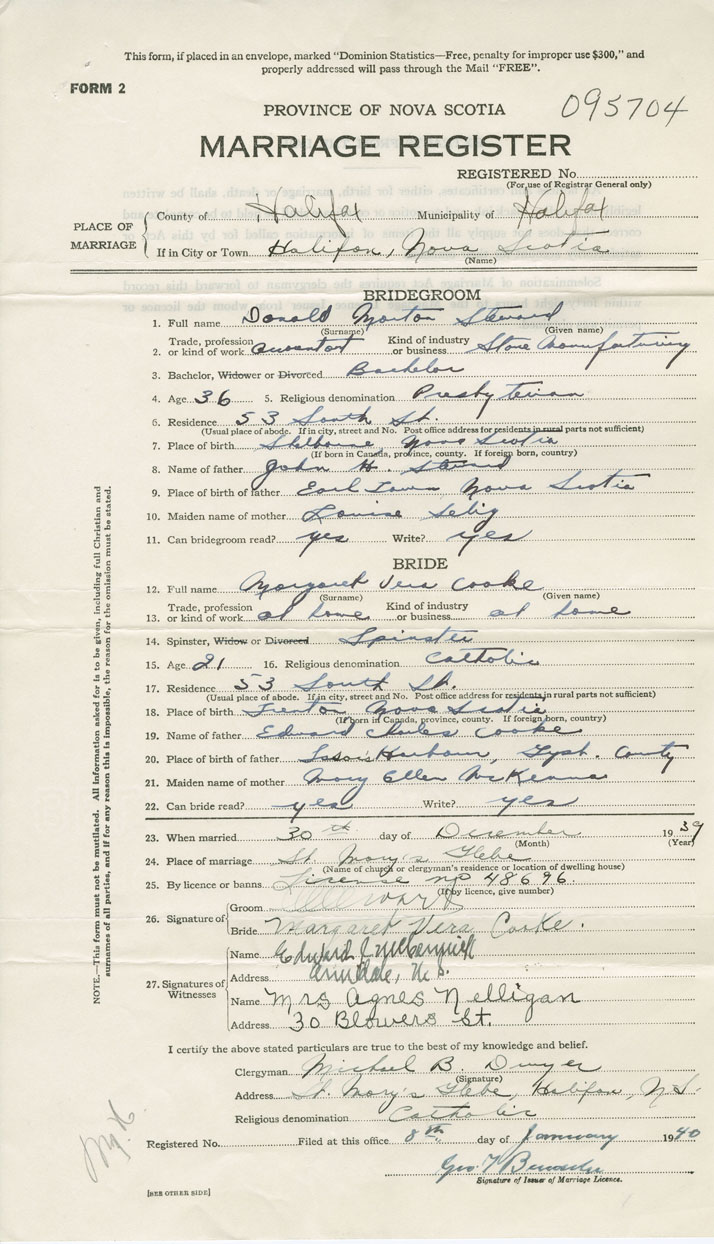 This form, if placed in an envelope, marked "Dominion Statistics—Free, penalty for improper use $300," and
properly addressed will pass through the Mail "FREE".
FORM 2
PROVINCE OF NOVA SCOTIA
095704
MARRIAGE REGISTER
REGISTERED No.
(For use of Registrar General only)
PLACE OF MARRIAGE
County of Halifax Municipality of Halifax
If in City or Town Halifax, Nova Scotia
(Name)
BRIDEGROOM
1. Full name Donald Morton Steward
(Surname) (Given name)
2. Trade, profession or kind of work Kind of industry or business Stove Manufacturing
3. Bachelor, Widower or Divorced Bachelor
4. Age 36 5. Religious denomination Presbyterian
6. Residence 53 South St.
(Usual place of abode. If in city, street and No. Post office address for residents in rural parts not sufficient)
7. Place of birth Shelburne, Nova Scotia
(If born in Canada, province, county. If foreign born, country)
8. Name of father John H. Steward
9. Place of birth of father Earl Town Nova Scotia
10. Maiden name of mother Louise Selig
11. Can bridegroom read? yes Write? yes
BRIDE
12. Full name Margaret Vera Cooke
(Surname) (Given name)
13. Trade, profession or kind of work at home Kind of industry or business at home
14. Spinster, Widow or Divorced Spinster
15. Age 21 16. Religious denomination Catholic
17. Residence 53 South St.
(Usual place of abode. If in city, street and No. Post office address for residents in rural parts not sufficient)
18. Place of birth Trenton Nova Scotia
(If born in Canada, province, county. If foreign born, country)
19. Name of father Edward Charles Cooke
20. Place of birth of father Isaac's Harbour, Gysb. County
21. Maiden name of mother Mary Ellen McKenna
22. Can bride read? yes Write? yes
23. When married 30th day of December 1939
(Month) (Year)
24. Place of marriage St. Mary's Glebe
(Name of church or clergyman's residence or location of dwelling house)
25. By licence or banns License no 48696.
(If by licence, give number)
26. Signature of
Groom
Bride Margaret Vera Cooke.
27. Signatures of Witnesses
Name Edward J
Address Armdale, N.S.
Name Mrs Agnes Nelligan
Address 30 Blowers St.
I certify the above stated particulars are true to the best of my knowledge and belief.
Clergyman Michael B. Dwyer
(Signature)
Address St. Mary's Glebe, Halifax, N.S.
Religious denomination Catholic
Registered No. Filed at this office 8th day of January 1940
Geo. T
Signature of Issuer of Marriage Licence.
[SEE OTHER SIDE]
NOTE.—This form must not be mutilated. All information asked for is to be given, including full Christian and
surnames of all parties, and if for any reason this is impossible, the reason for the omission must be stated.